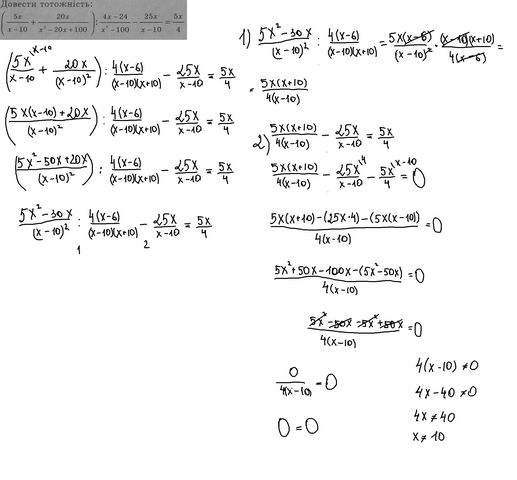 Довести тотожність:
(5x/(x-10) + 20x/(x²-20x+100)) : (4x-24)/(x²-100) - 25x/(x-10) = 5x/4
(5x^(x-10)/(x-10) + 20x/(x-10)²) : 4(x-6)/((x-10)(x+10)) - 25x/(x-10) = 5x/4
(5x(x-10)+20x/(x-10)²) : 4(x-6)/((x-10)(x+10)) - 25x/(x-10) = 5x/4
(5x²-50x+20x/(x-10)²) : 4(x-6)/((x-10)(x+10)) - 25x/(x-10) = 5x/4
5x²-30x/(x-10)² : 4(x-6)/((x-10)(x+10)) - 25x/(x-10) = 5x/4
1 2
1) 5x²-30x/(x-10)² : 4(x-6)/((x-10)(x+10)) = 5x(x-6)/(x-10)² · (x-10)(x+10)/4(x-6) =
= 5x(x+10)/4(x-10)
2) 5x(x+10)/4(x-10) - 25x/(x-10) = 5x/4
5x(x+10)/4(x-10) - 25x^4/(x-10) - 5x^(x-10)/4 = 0
5x(x+10)-(25x·4)-(5x(x-10))/4(x-10) = 0
5x²+50x-100x-(5x²-50x)/4(x-10) = 0
5x²-50x-5x²+50x/4(x-10) = 0
0/4(x-10) = 0
0 = 0
4(x-10) ≠ 0
4x-40 ≠ 0
4x ≠ 40
x ≠ 10